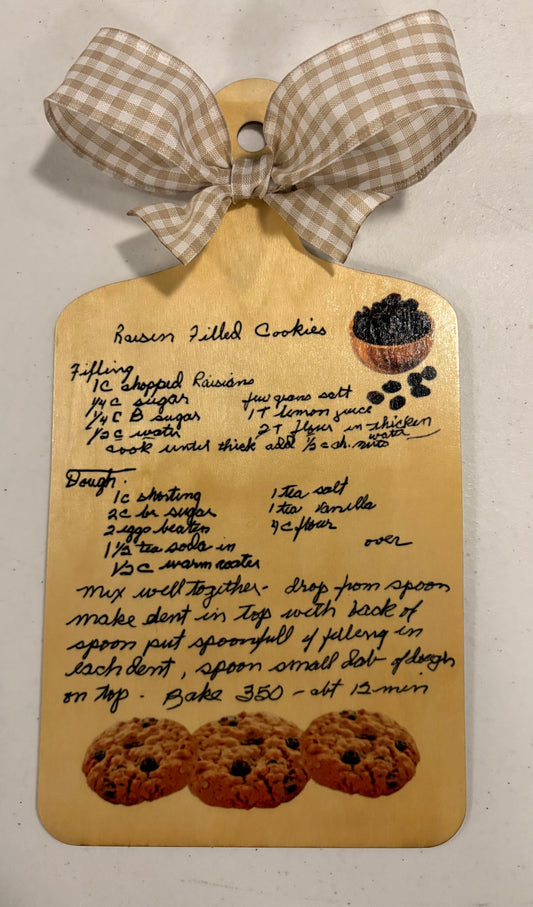 Raisin Filled Cookies
Filling
1C chopped Raisians
1/4 C sugar
1/4 C B sugar
1/2 C water
few grans salt
1 T lemon juice
2 T flour in thicken
water
cook until thick add 1/2 c ch. nuts
Dough.
1c shorting
2c br sugar
2 eggs beaten
1 1/2 tea soda in
1/2 c warm water
1 tea salt
1 tea vanilla
4 c flour
over
Mix well togither - drop from spoon
make dent in top with back of
spoon put spoonfull of filling in
each dent, spoon small dab of dough
on top - Bake 350 - abt 12 min